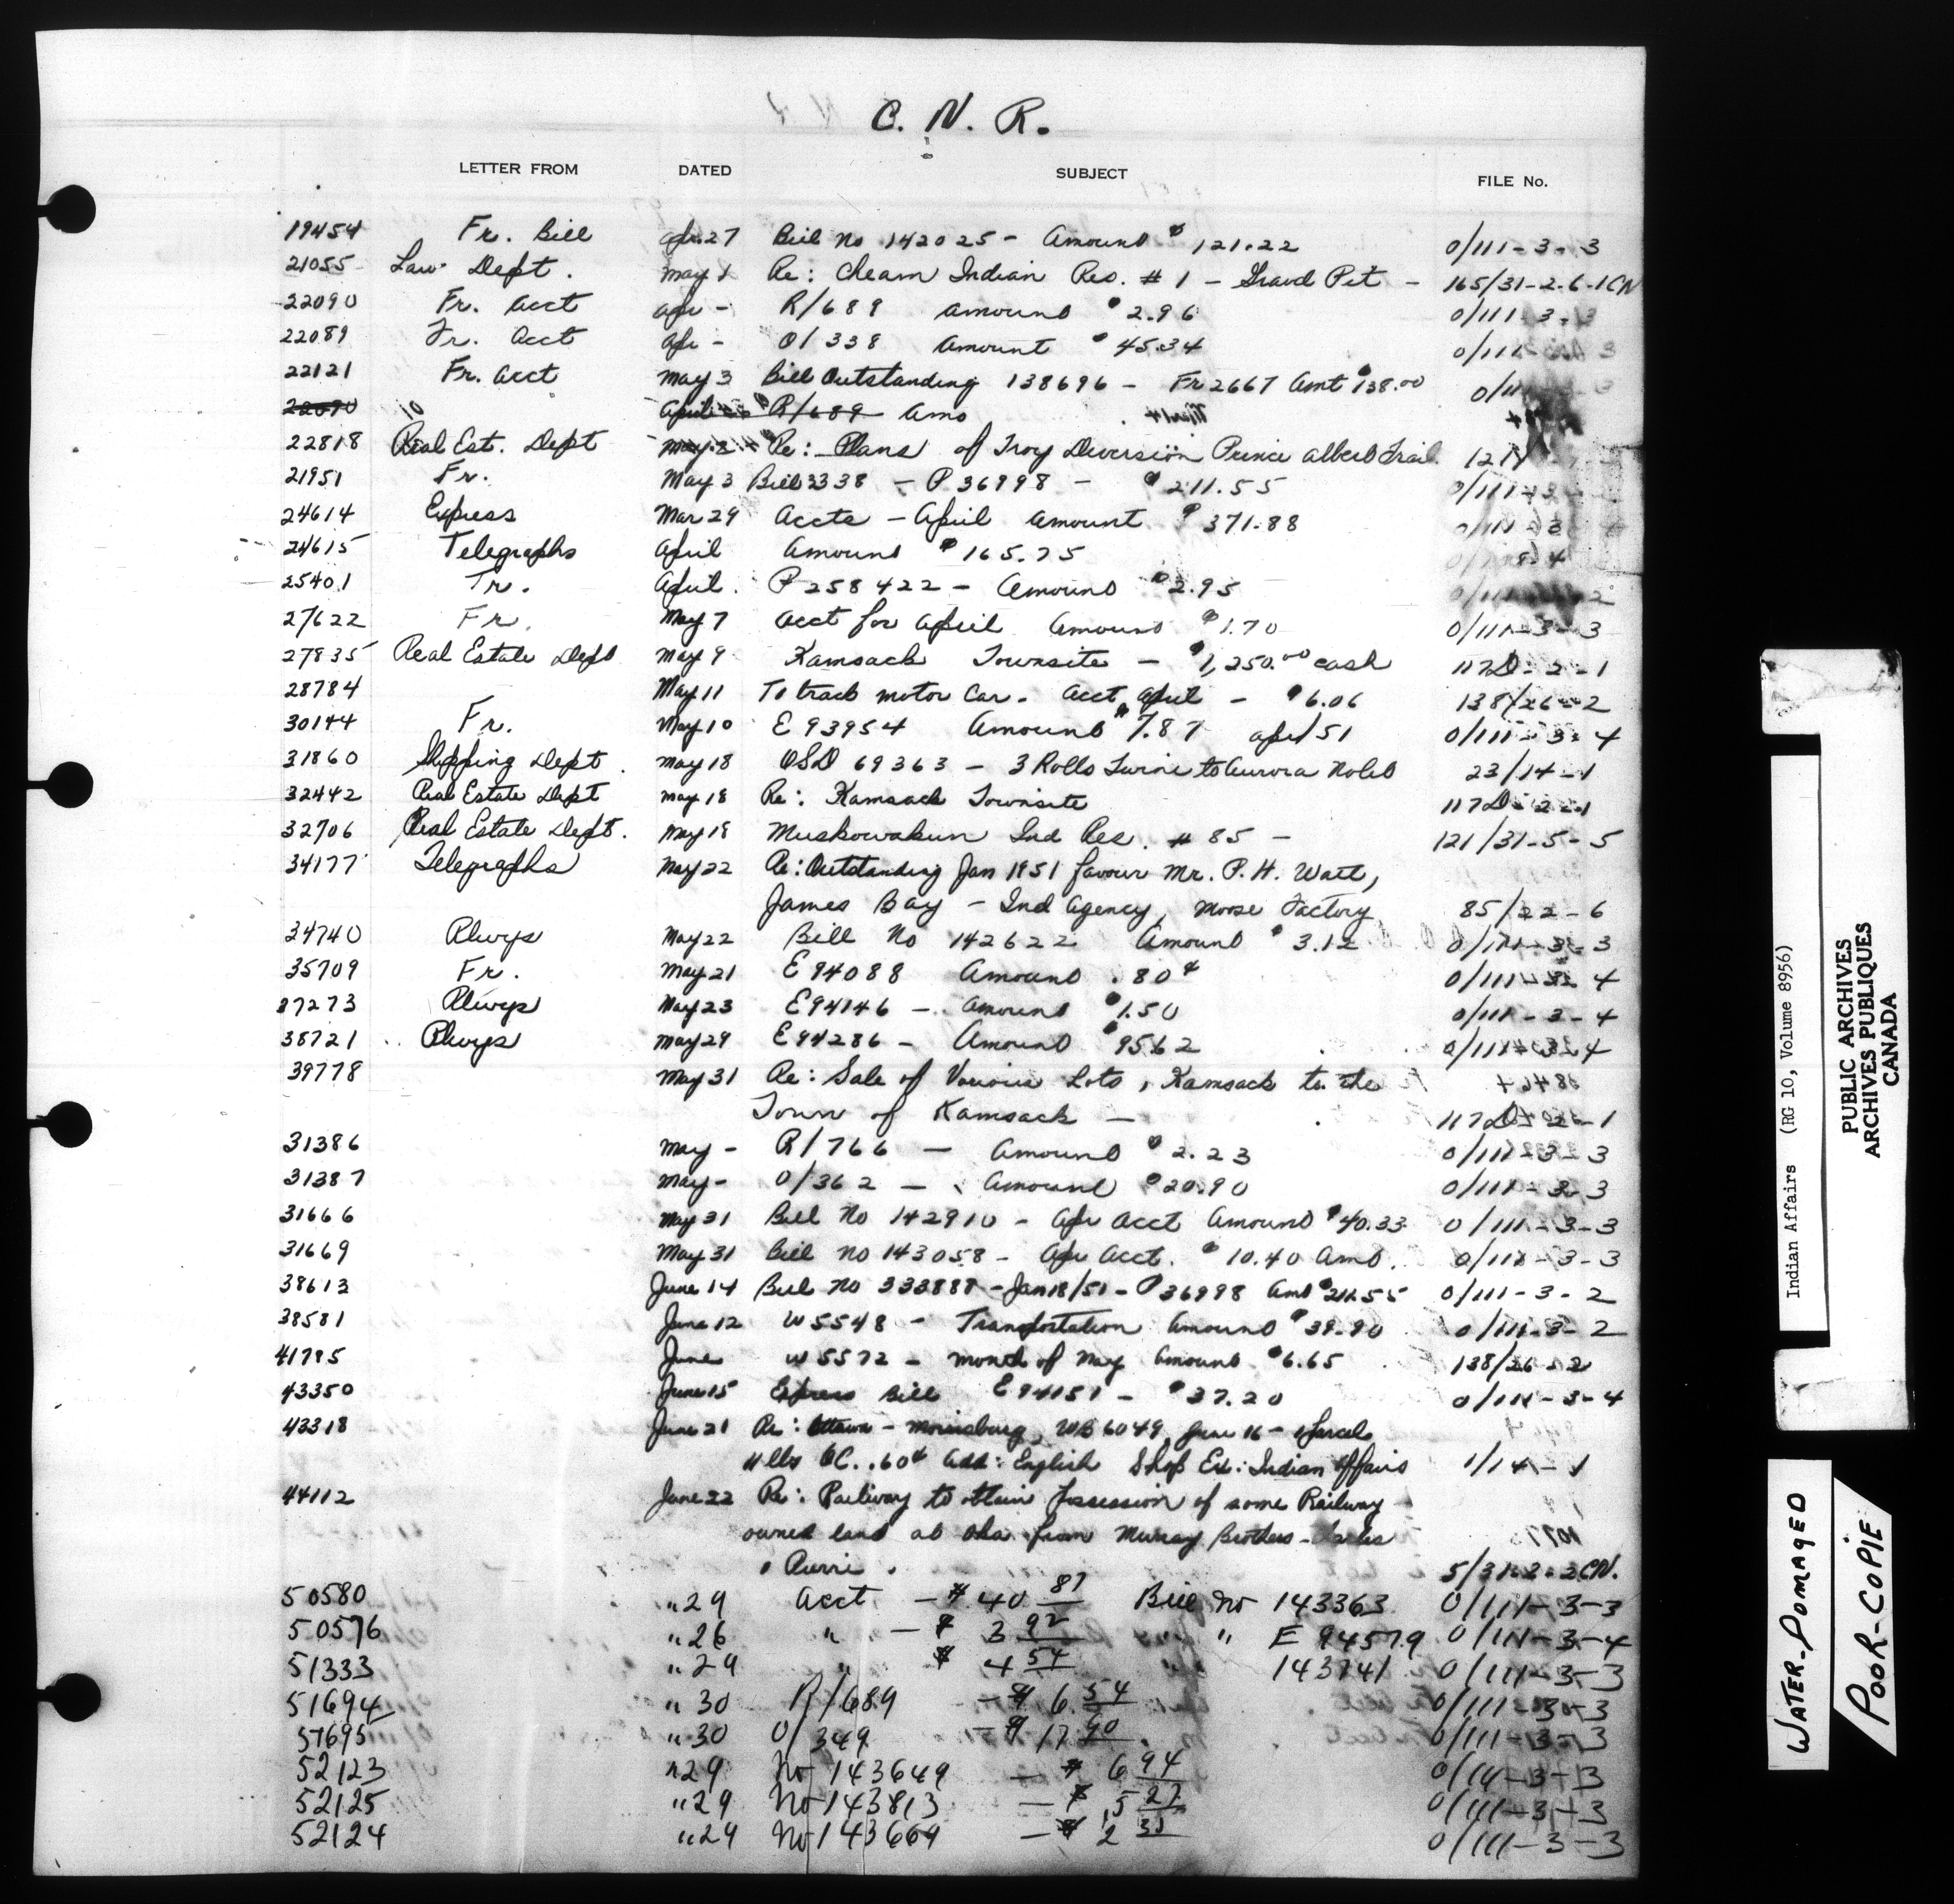 C. N. R.
LETTER FROM DATED SUBJECT FILE No.
19454 Fr. Bill Apr. 27 Bill no 142025 - Amount $121.22 0/111-3-3
21055 Law Dept. May 1 Re: Cheam Indian Res. #1 - Gravel Pit - 165/31-2-6-1CN
22090 Fr. Acct Apr - R/689 Amount $2.96 0/111-3-3
22089 Fr. Acct Apr - O/338 Amount $45.34
22121 Fr. Acct May 3 Bill Outstanding 138696 - Fr 2667 Amt $138.00
22090 April R/689 Amo
22818 Real Est. Dept May 2 Re: Plans of Troy Diversion Prince Albert Trail
21951 Fr. May 3 Bill 3338 - P 36998 - $211.55
24614 Express Mar 29 Accts - April Amount $371.88
24615 Telegraphs April Amount $165.75
25401 Tr. April. P 258422 - Amount $2.95
27622 Fr. May 7 Acct for April Amount $1.70 0/111-3-3
27835 Real Estate Dept May 9 Kamsack Townsite - $1,250.00 cash 117D-2-1
28784 May 11 To track motor car - Acct April - $6.06 138/26-2
30144 Fr. May 10 E 93954 Amount $7.87 Apr/51 0/111-3-4
31860 Shipping Dept. May 18 OSD 69363 - 3 Rolls Twine to Aurora 23/14-1
32442 Real Estate Dept May 18 Re: Kamsack Townsite 117D-2-1
32706 Real Estate Dept. May 18 Muskowakun Ind Res. #85 - 121/31-5-5
34177 Telegraphs May 22 Re: Outstanding Jan 1951 favour Mr. P. H. Watt,
James Bay - Ind Agency, Moose Factory 85/22-6
34740 Rlwys May 22 Bill No 142622 Amount $3.12 0/111-3-3
35709 Fr. May 21 E 94088 Amount .80¢ 0/111-3-4
37273 Rlwys May 23 E94146 - Amount $1.50 0/111-3-4
38721 Rlwys May 29 E 94286 - Amount $95.62 0/111-3-4
39778 May 31 Re: Sale of Various Lots, Kamsack to the
Town of Kamsack - 117D-2-1
31386 May - R/766 - Amount $2.23 0/111-3-3
31387 May - O/362 - Amount $20.90 0/111-3-3
31666 May 31 Bill No 142910 - Apr Acct Amount $40.33 0/111-3-3
31669 May 31 Bill no 143058 - Apr Acct. $10.40 Amt. 0/111-3-3
38613 June 14 Bill no 333888 - Jan 18/51 - P 36998 Amt $211.55 0/111-3-2
38581 June 12 W 5548 - Transportation Amount $39.90 0/111-3-2
41795 June W 5572 - month of May Amount $6.65 138/26-2
43350 June 15 Express Bill E 94151 - $37.20 0/111-3-4
43318 June 21 Re: Ottawa - Morrisburg, WB 6049, June 16 - 1 Parcel
11 lbs OC. .60¢ Add: English Shop Ex: Indian Affairs 1/14-1
44112 June 22 Re: Railway to obtain possession of some Railway
owned land at Oka from Murray Brothers -
5/31-2-2CN.
50580 " 29 Acct - $40 87 Bill No 143363 0/111-3-3
50576 " 26 " - $3 92 " " E 94579 0/111-3-4
51333 " 29 " $4 54 143741 0/111-3-3
51694 " 30 R/689 - $6 54 0/111-3-3
51695 " 30 O/349 - $17 90 0/111-3-3
52123 " 29 No 143649 - $6 94 0/111-3-3
52125 " 29 No 143813 - $5 27 0/111-3-3
52124 " 29 No 143669 - $2 0/111-3-3
Indian Affairs (RG 10, Volume 8956)
PUBLIC ARCHIVES
ARCHIVES PUBLIQUES
CANADA
WATER-DOMAGED
POOR-COPIE